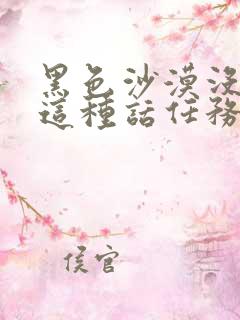 黑色沙漠沒
這種話任務
侯官